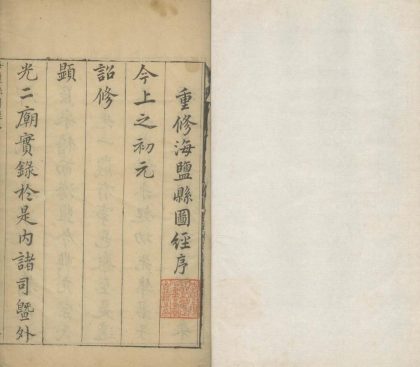 重修海鹽縣圖經序
今上之初元
詔修
顯
光二廟實錄於是內諸司暨外